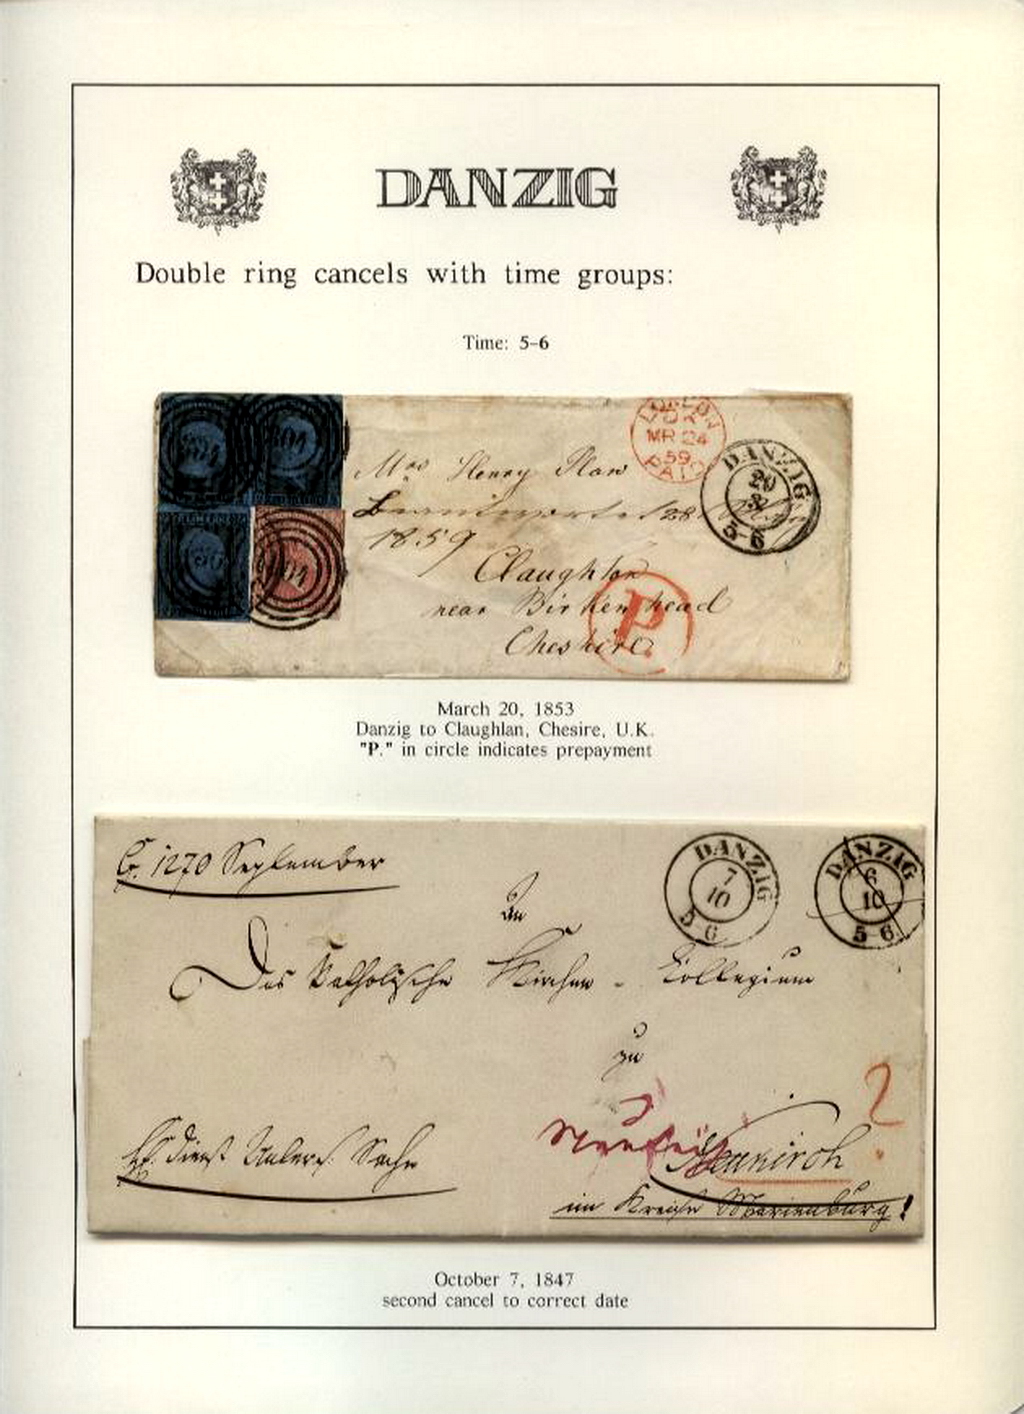 DANZIG
Double ring cancels with time groups:
Time: 5-6
LONDON
MR 24
59
PAID
DANZIG
20
3
5-6
Mrs Henry Plow
1859
Claughton
near Birkenhead
Cheshire
P.
March 20, 1853
Danzig to Claughlan, Chesire, U.K.
"P." in circle indicates prepayment
G. 1270 September
DANZIG
7
10
5 6
DANZIG
6
10
5-6
An
Das Katholische Kirchen-Collegium
zu
?
Neukirch
im Kreise Marienburg!
October 7, 1847
second cancel to correct date